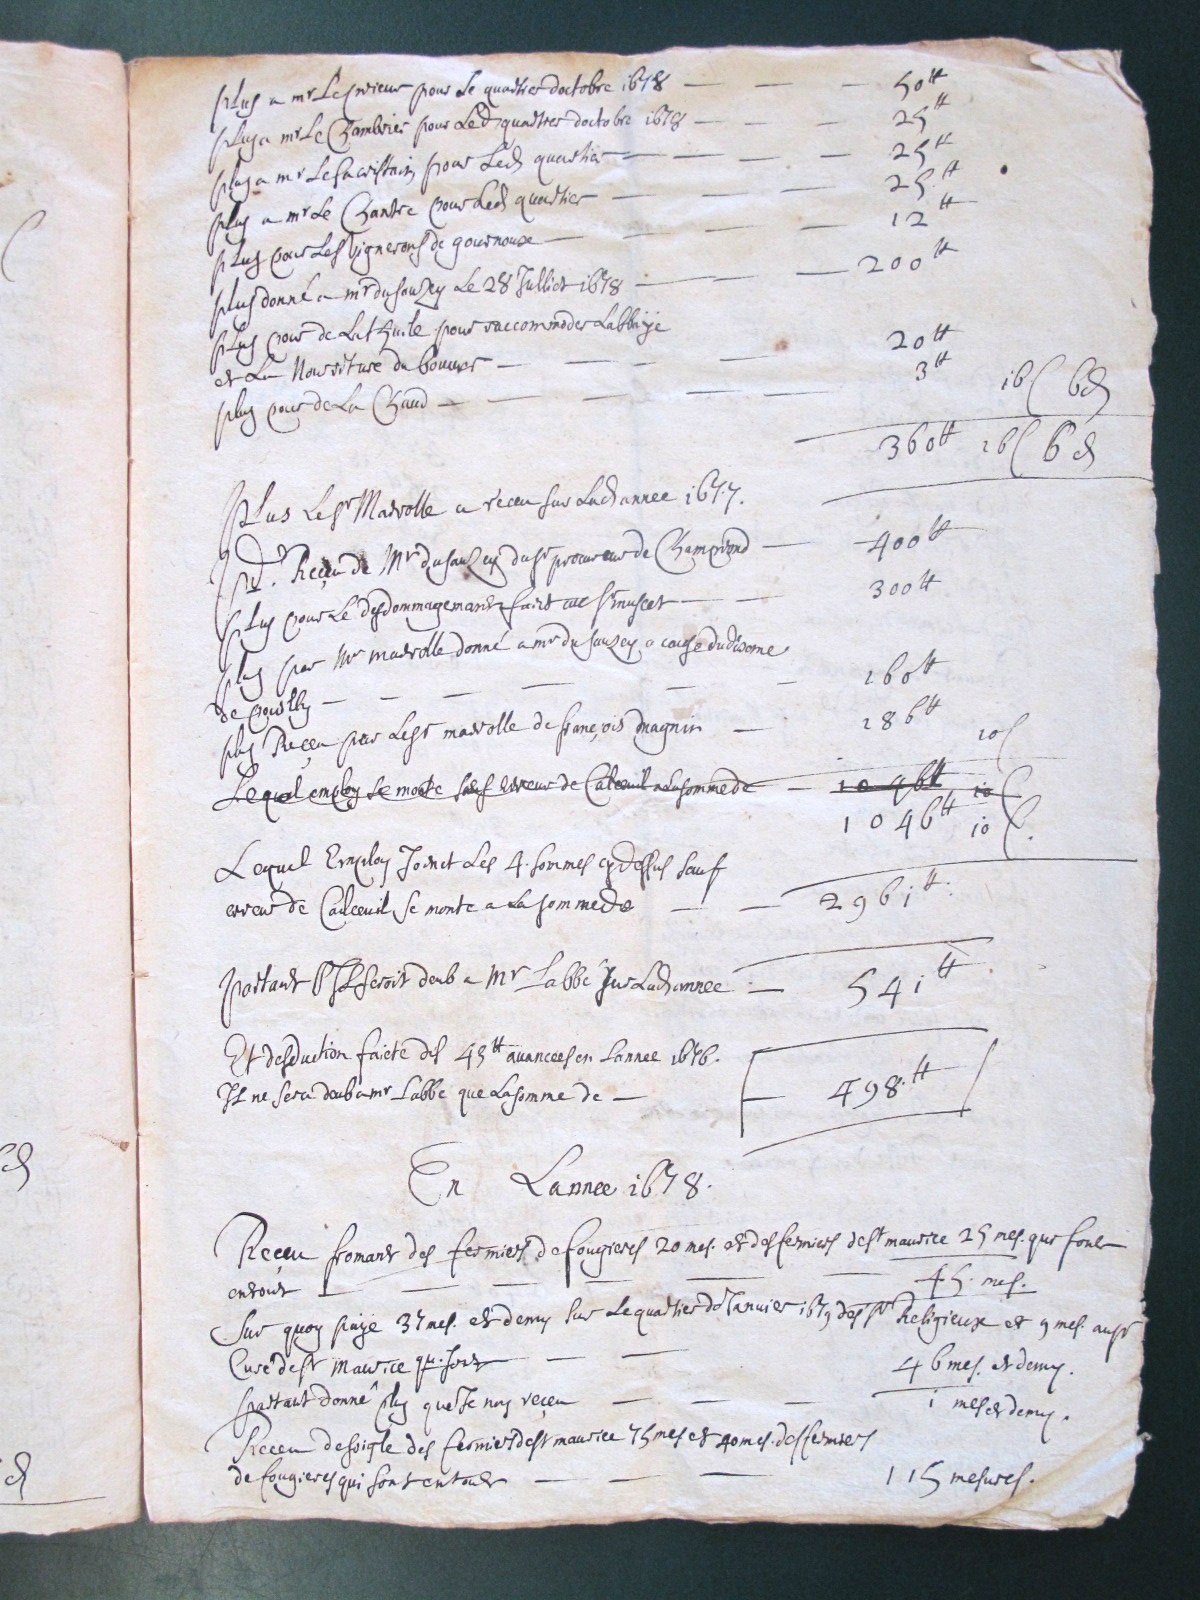 plus a mr Le prieur pour Le quartier doctobre 1678 — — — 50tt
plus a mr Le Chambrier pour Led quartier doctobre 1678 — — 25tt
plus a mr Le sacristain pour Led quartier — — — 25tt
plus a mr Le Chantre pour Led quartier — — — 25tt
plus pour Les vignerons de gournoux — — — 12tt
plus donné a mr du sauzey Le 28 Julliet 1678 — — — 200tt
plus pour de Lat huile pour raccommoder Labbaye
et La Nourriture du bouvier — — — 20tt
plus pour de La Chaud — — — 3tt 16s 6d
360tt 16s 6d
Plus Le sr Marolle a receu sur Lad annee 1677.
Receu de Mr du sauzey du sr procureur de Champrond — 400tt
plus pour Le desdommagement faict sr muscet — — 300tt
plus par Mr marolle donné a mr du sauzey a cause du disme
de pouilly — — — — — — 160tt
plus Receu par Le sr marolle de françois magnin — 186tt 10s
Lequel employ se monte sauf erreur de Calceuil a La somme de — 1046tt 10s
1046tt 10s.
Lequel Employ Joinct Les 4. sommes cy dessus sauf
erreur de Calceuil se monte a La somme de — — 2961tt.
Partant Il seroit deub a Mr Labbé sur Lad annee — 541tt
Et desduction faicte des 43tt avancees en Lannee 1676.
Il ne sera deub a mr Labbe que La somme de — — 498.tt
En Lannee 1678.
Receu froment des fermiers de fougieres 20 mes. et des fermiers de st maurice 25 mes. qui sont
en tout — — — — — 45. mes.
Sur quoy payé 37 mes. et demy sur Le quartier de Janvier 1679 des srs Religieux et 9 mes. au sr
Curé de st Maurice qui sont — — 46 mes. et demy.
partant donné plus que Je nay receu — — — 1 mes et demy.
Receu de seigle des fermiers de st maurice 75 mes et 40 mes. des fermiers
de fougieres qui sont en tout — — — 115 mesures.